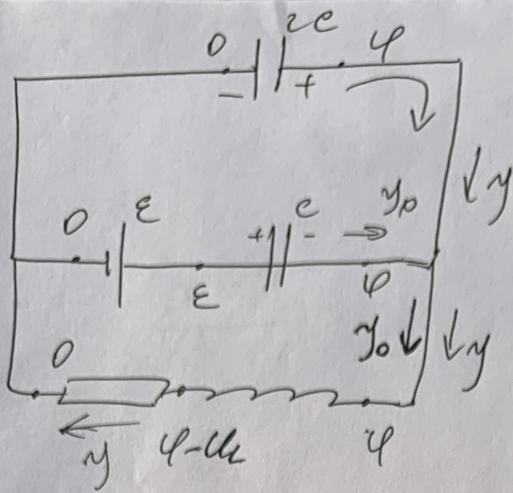 0 2C φ
− +
0 ε C y₀ y
+ −
ε φ
0 y₀ y
y φ-U_L φ